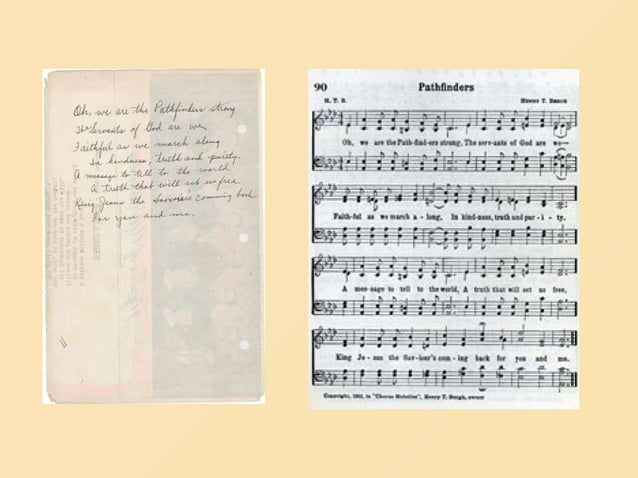 Oh, we are the Pathfinders strong
The Servants of God are we,
Faithful as we march along
In kindness, truth and purity.
A message to tell to the world
A truth that will set us free
King Jesus the Saviour's coming back
For you and me.
90 Pathfinders
H. T. B. HENRY T. BERGH
Oh, we are the Path-find-ers strong, The serv-ants of God are we—
Faith-ful as we march a - long, In kind-ness, truth and pur - i - ty.
A mes-sage to tell to the world, A truth that will set us free,
King Je - sus the Sav-iour's com - ing back for you and me.
Copyright, 1952, in "Chorus Melodies", Henry T. Bergh, owner